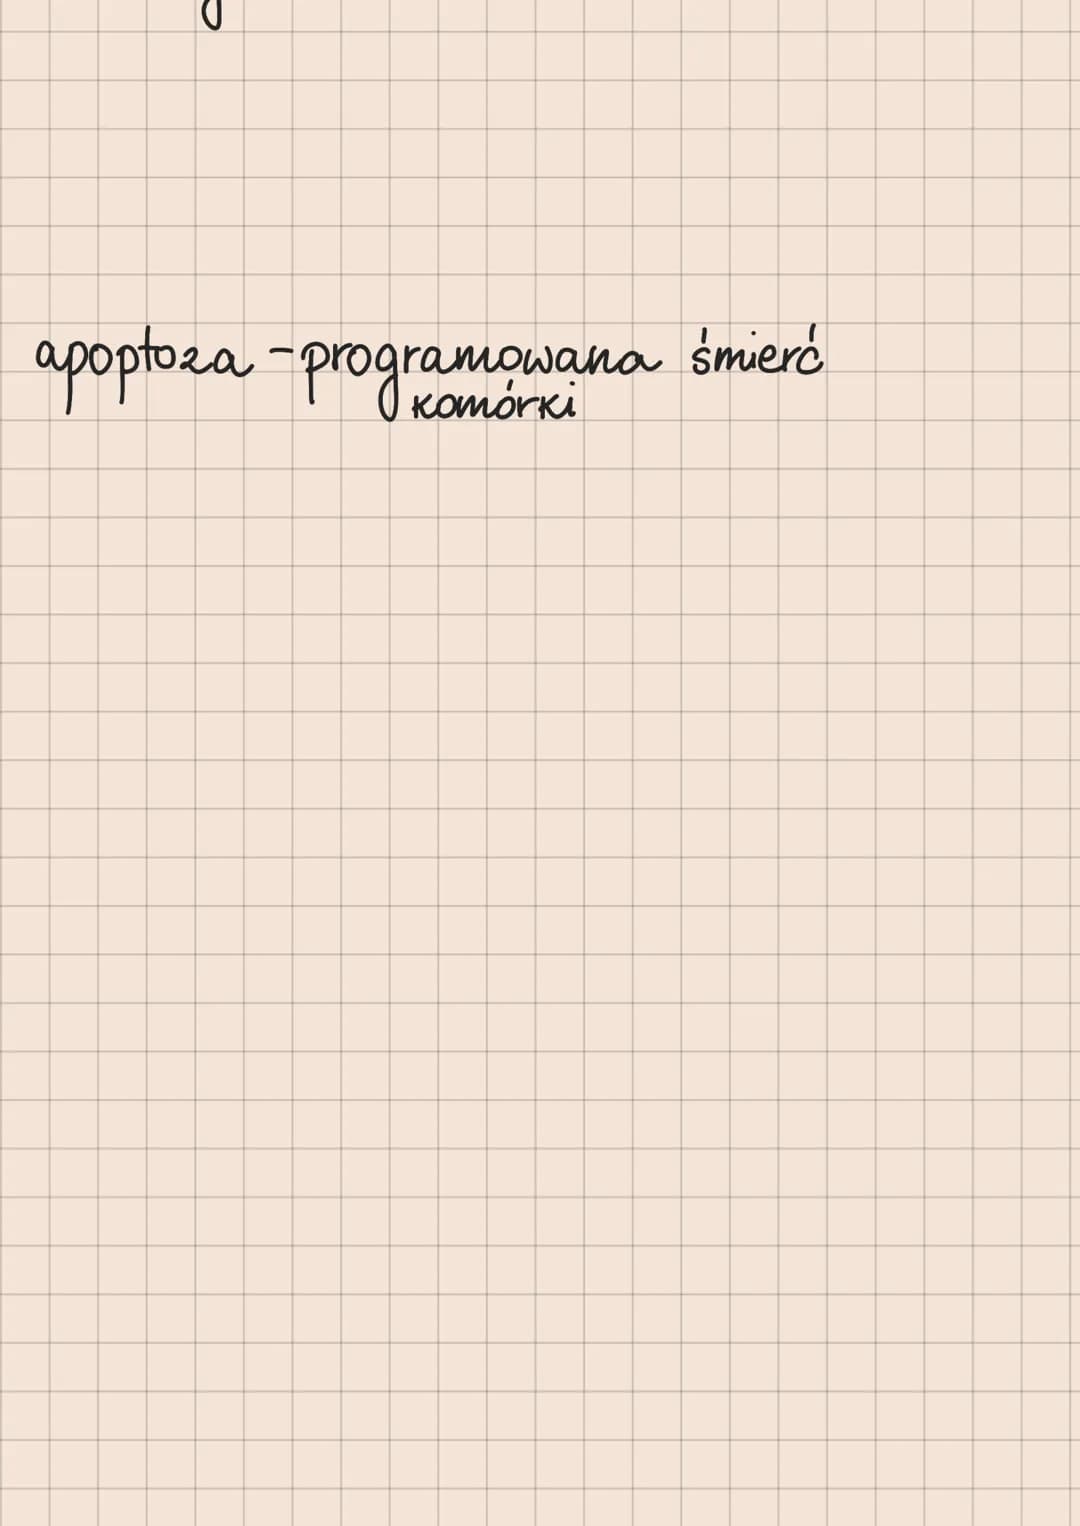 apoptoza - programowana śmierć
komórki